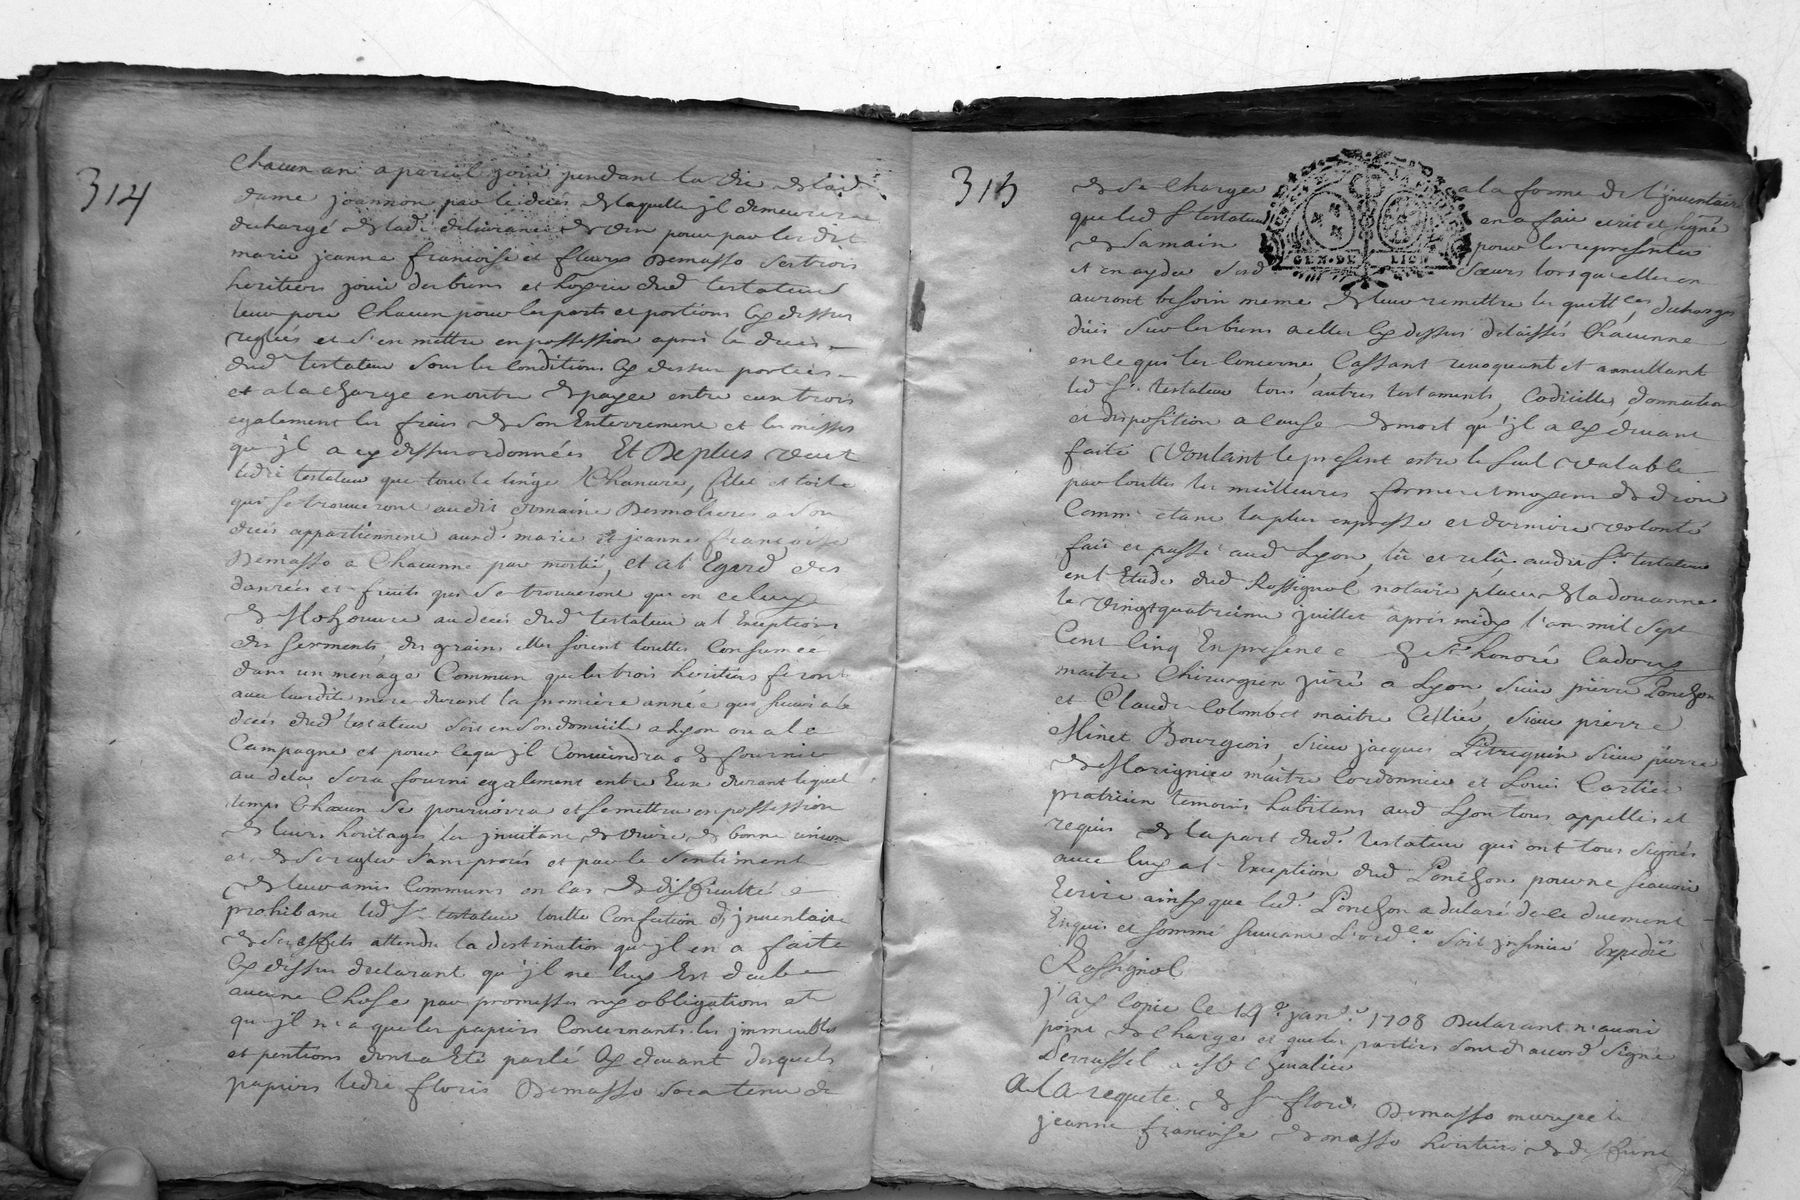 314
Chacun an a pareil jour pendant la vie de lad
dame joannon par le decés de laquelle jl demeurera
dechargé de lade delivrance de vin pour par lesdit
marie jeanne francoise et fleury Demasso ses trois
heritiers jouir des biens et hoyrie dud testateur
leur pere Chacun pour les parts et portions Cy dessus
reglées et s'en mettre en possession apres le deces
dud testateur sous les Conditions Cy dessus portées
et a la charge en outre de payer entre eux trois
egalement les frais de son Enterrement et les messes
qu'jl a cy dessus ordonnées Et De plus veut
ledit testateur que tout le linge Chanvre, fillet et toile
qui se trouveront audit domaine Desmolieres a son
decés appartiennent auxd. marie et jeanne francoise
Demasso a Chacunne par moitié, et a l'Egard des
danrées et fruits qui se trouveront qu'en celuy
de au decés dud testateur a l'Exception
des serments, des grains elles soient touttes Consumée
dans un menage Commun que les trois heritiers feront
avec leurdite mere durant la premiere année qui suivra le
decés dud testateur soit en son domicile a Lyon ou a la
Campagne et pour ce qu'jl Conviendra de fournir
au dela sera fourni egalement entre Eux durant lequel
temps Chacun se pourvoira et se mettra en possession
de leurs heritages les jnvitant de vivre de bonne union
et de se regler sans procés et par le sentiment
de leurs amis Communs en cas de difficulté
prohibant led Sr testateur toutte Confection d'jnventaire
de ses effets attendu la destination qu'jl en a faite
Cy dessus declarant qu'jl ne luy Est deub
aucune Chose par promesses ny obligations et
qu'jl n'a que les papiers Concernants les jmmeubles
et pentions dont a Eté parlé Cy devant desquels
papiers ledit floris Demasso sera tenu de
315
de se Charger a la forme de l'jnventaire
que led Sr testateur en a fait ecrit et signé
de sa main pour les representer
et en ayder sesd Sœurs lors qu'elles en
auront besoin meme de leur remettre les quittces decharges
dües sur les biens a elles Cy dessus delaissés Chacunne
en ce qui les Concerne, Cassant revoquant et annullant
led Sr testateur tous autres testaments, Codicilles, donnation
et disposition a Cause de mort qu'jl a cy devant
faite Voulant le present estre le seul valable
par touttes les meilleures formes et moyens de droit
Comme etant la plus expresse et derniere volonté
fait et passé aud Lyon, lû et relû audit Sr testateur
en l'Etude dud Rossignol notaire place de la douanne
le vingt quatrieme juillet apres midy l'an mil sept
Cent Cinq En presence de Sr honoré Cadoux
maitre Chirurgien juré a Lyon, sieur pierre Ponchon
et Claude Colombet maitre Cellier, sieur pierre
Minet Bourgeois, sieur jacques Petrequin sieur pierre
de Marignier maitre Cordonnier et Louis Cartier
praticien temoins habitans aud Lyon tous appellés et
requis de la part dud. testateur qui ont tous signés
avec luy a l'Exception dud Ponchon pour ne sçavoir
Ecrire ainsy que led. Ponchon a declaré de ce duement
Enquis et sommé suivant l'ordce soit jnsinué Expedié
Rossignol
j'ay Copie Ce 19e janr. 1708 Declarant n'avoir
point de Charges et que les parties sont d'accord signé
Perrussel a esté Chevalier
A La requete de Sr floris Demasso
jeanne francoise Demasso heritiers de deffunt
GEN. DE LION